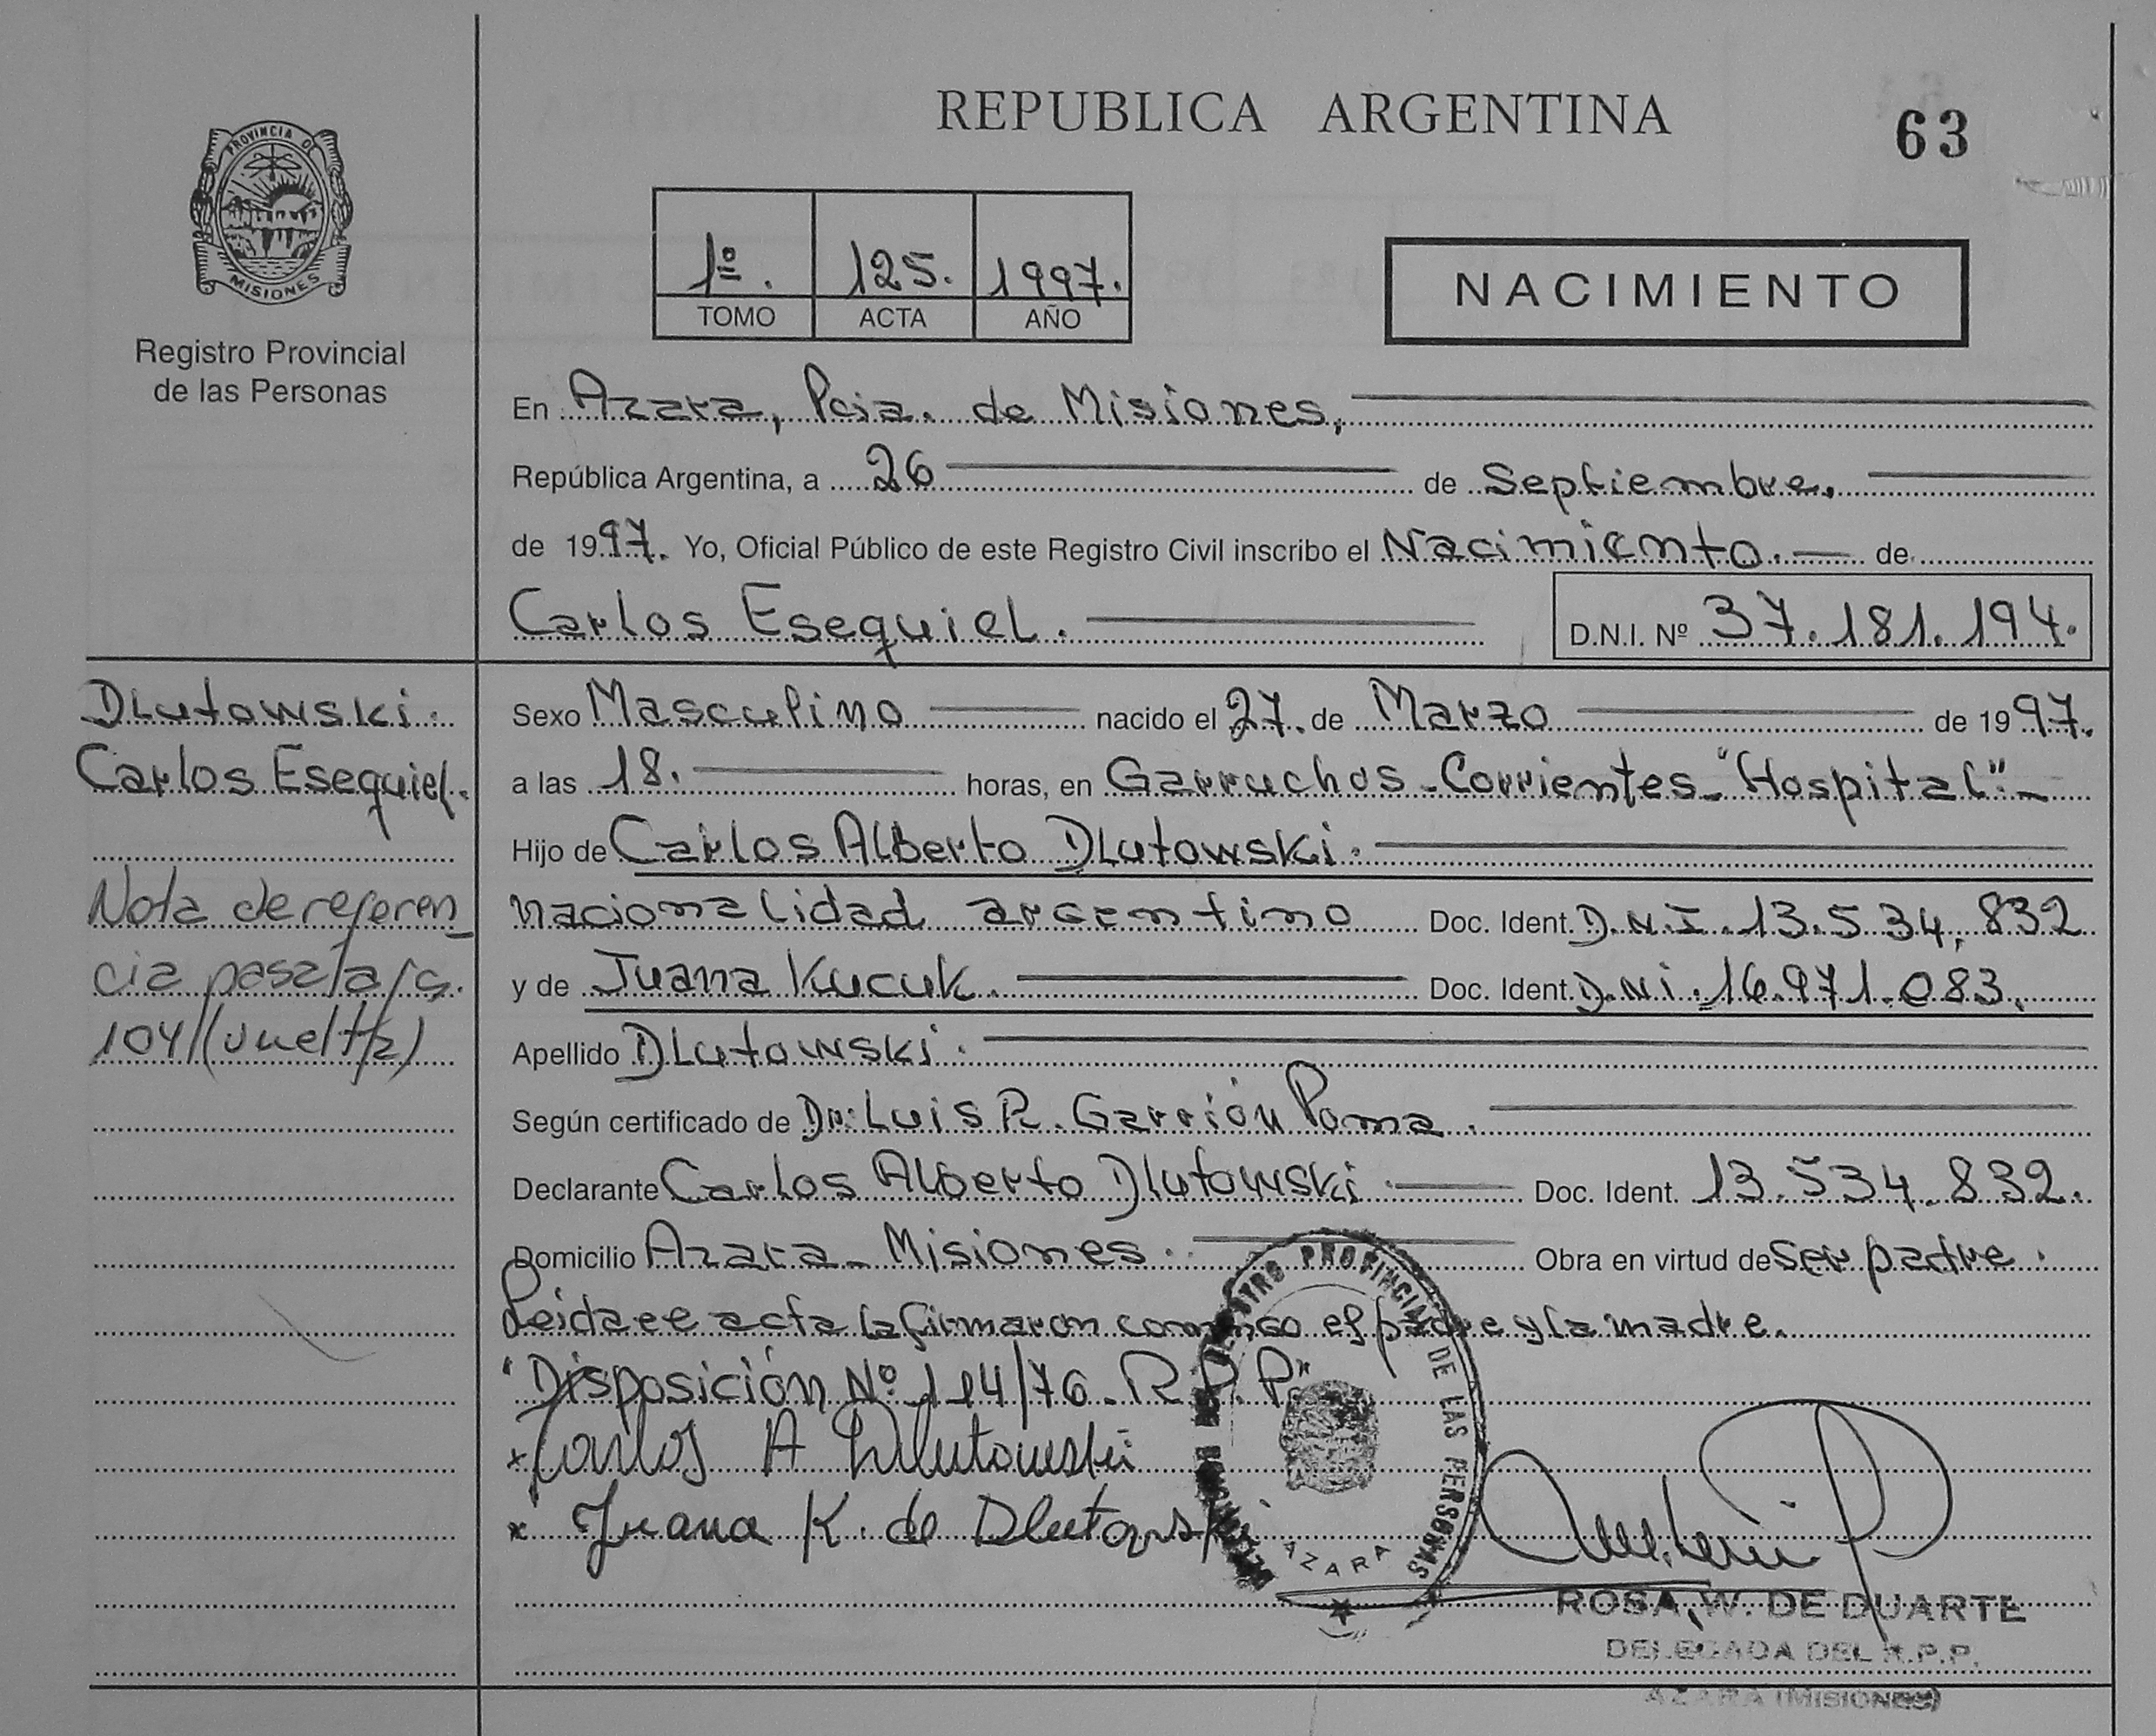 REPUBLICA ARGENTINA
63
PROVINCIA DE
MISIONES
Registro Provincial
de las Personas
1º. 125. 1997.
TOMO ACTA AÑO
NACIMIENTO
En Azara, Pcia. de Misiones,
República Argentina, a 26 de Septiembre.
de 1997. Yo, Oficial Público de este Registro Civil inscribo el Nacimiento. de
Carlos Esequiel. D.N.I. Nº 37.181.194.
Dlutowski.
Carlos Esequiel.
Nota de referen
cia pasa a fs.
104 (vuelta)
Sexo Masculino nacido el 27. de Marzo de 1997.
a las 18. horas, en Garruchos - Corrientes - "Hospital" -
Hijo de Carlos Alberto Dlutowski.
nacionalidad argentino Doc. Ident. D.N.I. 13.534.832
y de Juana Kucuk. Doc. Ident. D.N.I. 16.971.083.
Apellido Dlutowski.
Según certificado de Dr. Luis R. Garrión Poma.
Declarante Carlos Alberto Dlutowski. Doc. Ident. 13.534.832.
Domicilio Azara - Misiones. Obra en virtud de ser padre.
Leida el acta la firmaron conmigo el padre y la madre.
"Disposición Nº 114/76. R.P.P."
x Carlos A Dlutowski
x Juana K. de Dlutowski
REGISTRO PROVINCIAL DE LAS PERSONAS
AZARA
ROSA W. DE DUARTE
DELEGADA DEL R.P.P.
AZARA (MISIONES)